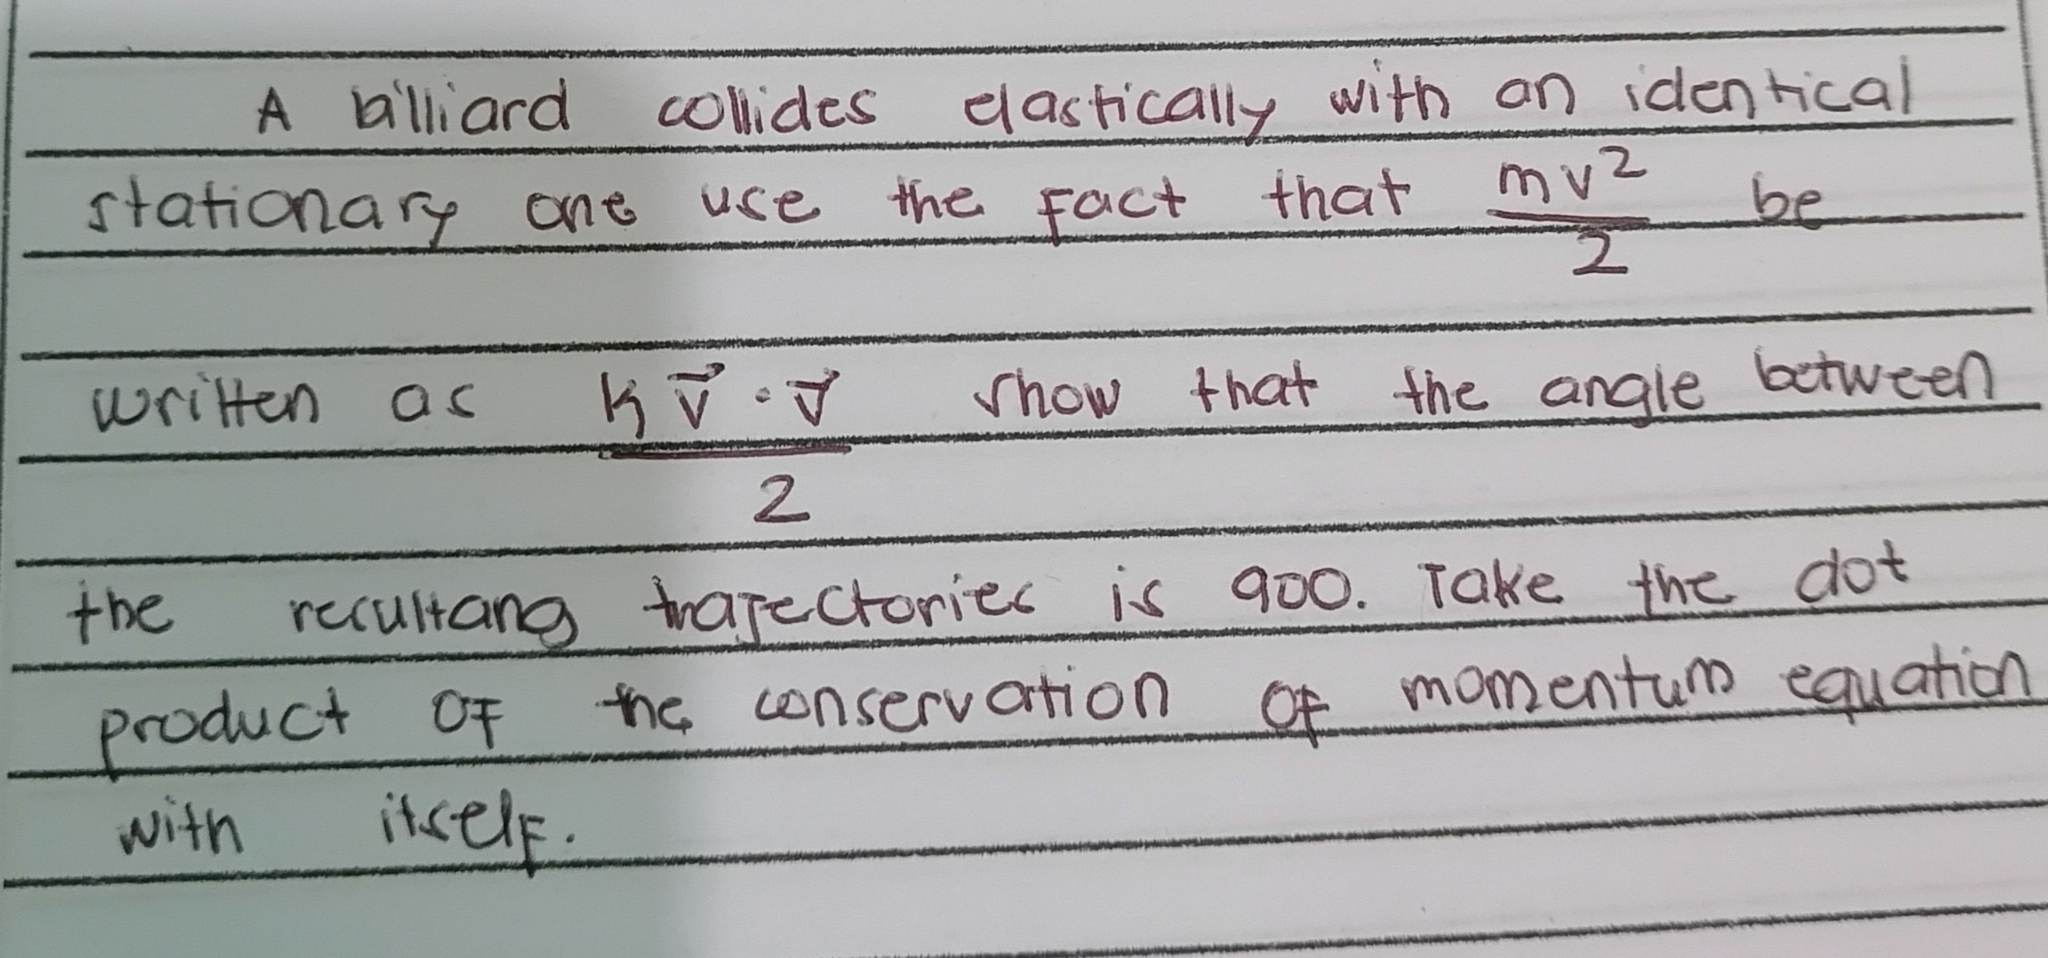 A billiard collides elastically with an identical
stationary one use the fact that mv²/2 be
written as k v⃗·v⃗/2 show that the angle between
the resultang trajectories is 900. Take the dot
product of the conservation of momentum equation
with itself.